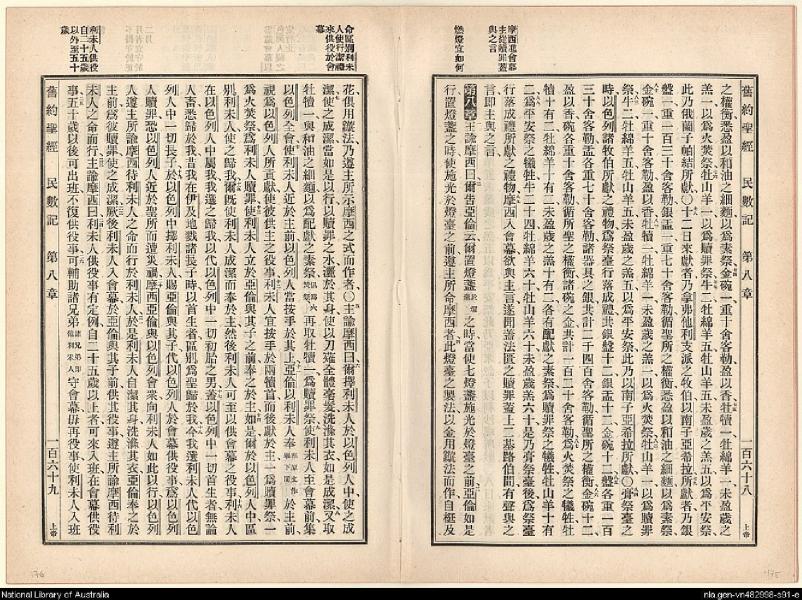 舊約聖經 民數記 第八章 一百六十八 上帝
摩西進會幕
主從贖罪蓋
與之言
燃燈宜如何
之權衡悉盈以和油之細麵以爲素祭金碗一重十舍客勒盈以香牡犢一牡綿羊一未盈歲之
羔一以爲火焚祭牡山羊一以爲贖罪祭牛二牡綿羊五牡山羊五未盈歲之羔五以爲平安祭
此乃俄蘭子帕結所獻〇十二日來獻者乃拿弗他利支派之牧伯以南子亞希拉所獻者乃銀
盤一重一百三十舍客勒銀盂一重七十舍客勒循聖所之權衡悉盈以和油之細麵以爲素祭
金碗一重十舍客勒盈以香牡犢一牡綿羊一未盈歲之羔一以爲火焚祭牡山羊一以爲贖罪
祭牛二牡綿羊五牡山羊五未盈歲之羔五以爲平安祭此乃以南子亞希拉所獻〇膏祭臺之
時以色列諸牧伯所獻之禮物爲祭臺行落成禮共銀盤十二銀盂十二金碗十二盤各重一百
三十舍客勒盂各重七十舍客勒諸器具之銀共計二千四百舍客勒循聖所之權衡金碗十二
盈以香碗各重十舍客勒循所聖之權衡諸碗之金共計一百二十舍客勒爲火焚祭之犧牲牡
犢十有二牡綿羊十有二未盈歲之羔十有二各有配獻之素祭爲贖罪祭之犧牲牡山羊十有
二爲平安祭之犧牲牛二十四牡綿羊六十牡山羊六十未盈歲羔六十是乃膏祭臺後爲祭臺
行落成禮所獻之禮物摩西入會幕欲與主言遂聞蓋法匱之贖罪蓋上二基路伯間有聲與之
言卽主與之言
第八章 主諭摩西曰爾告亞倫云爾置燈盞之時當使七燈盞施光於燈臺之前亞倫如是
行置燈盞之時使施光於燈臺之前遵主所命摩西者此燈臺之製法以金用鏇法而作自梃及
命區別利未
人使行潔禮
來供役於會
幕
利未人供役
自二十五歲
以外至五十
歲
花俱用鏇法乃遵主所示摩西之式而作者〇主諭摩西曰爾擇利未人於以色列人中使之成
潔使之成潔當如是以行以贖罪之水灑於其身使以刀薙全體毫髮洗滌其衣如是成潔又取
牡犢一與和油之細麵以爲配獻之素祭再取牡犢一爲贖罪祭使利未人至會幕前集
以色列全會使利未人近於主前以色列人當按手於其上亞倫以利未人奉於主前
視爲以色列人所貢獻使彼供主之役事利未人宜按手於兩犢首而後獻於主一爲贖罪祭一
爲火焚祭爲利未人贖罪使利未人立於亞倫與其子之前奉之於主如是爾於以色列人中區
別利未人使之歸我爾既使利未人成潔而奉於主然後利未人可至以供會幕之役事利未人
在以色列人中屬我我選之歸我以代以色列中一切初胎之男蓋以色列中一切首生者無論
人畜悉歸於我昔我在伊及地戮諸長子時以首生者區別爲聖歸於我今我選利未人代以色
列人中一切長子於以色列中擇利未人賜亞倫與其子代以色列人於會幕供役事爲以色列
人贖罪恐以色列人近於聖所而遭災禍摩西亞倫與以色列會衆向利未人如此以行以色列
人遵主所諭摩西待利未人之命而行於利未人於是利未人自潔其身洗滌其衣亞倫奉之於
主前爲彼贖罪使之成潔厥後利未人入會幕於亞倫與其子前供其役事遵主所諭摩西待利
未人之命而行主諭摩西曰利未人供役事有定例自二十五歲以上者可來入班在會幕供役
事五十歲以後可出班不復供役事可輔助諸兄弟守會幕毋再役事使利未人入班
舊約聖經 民數記 第八章 一百六十九 上帝
National Library of Australia
nla.gen-vn482998-s91-e